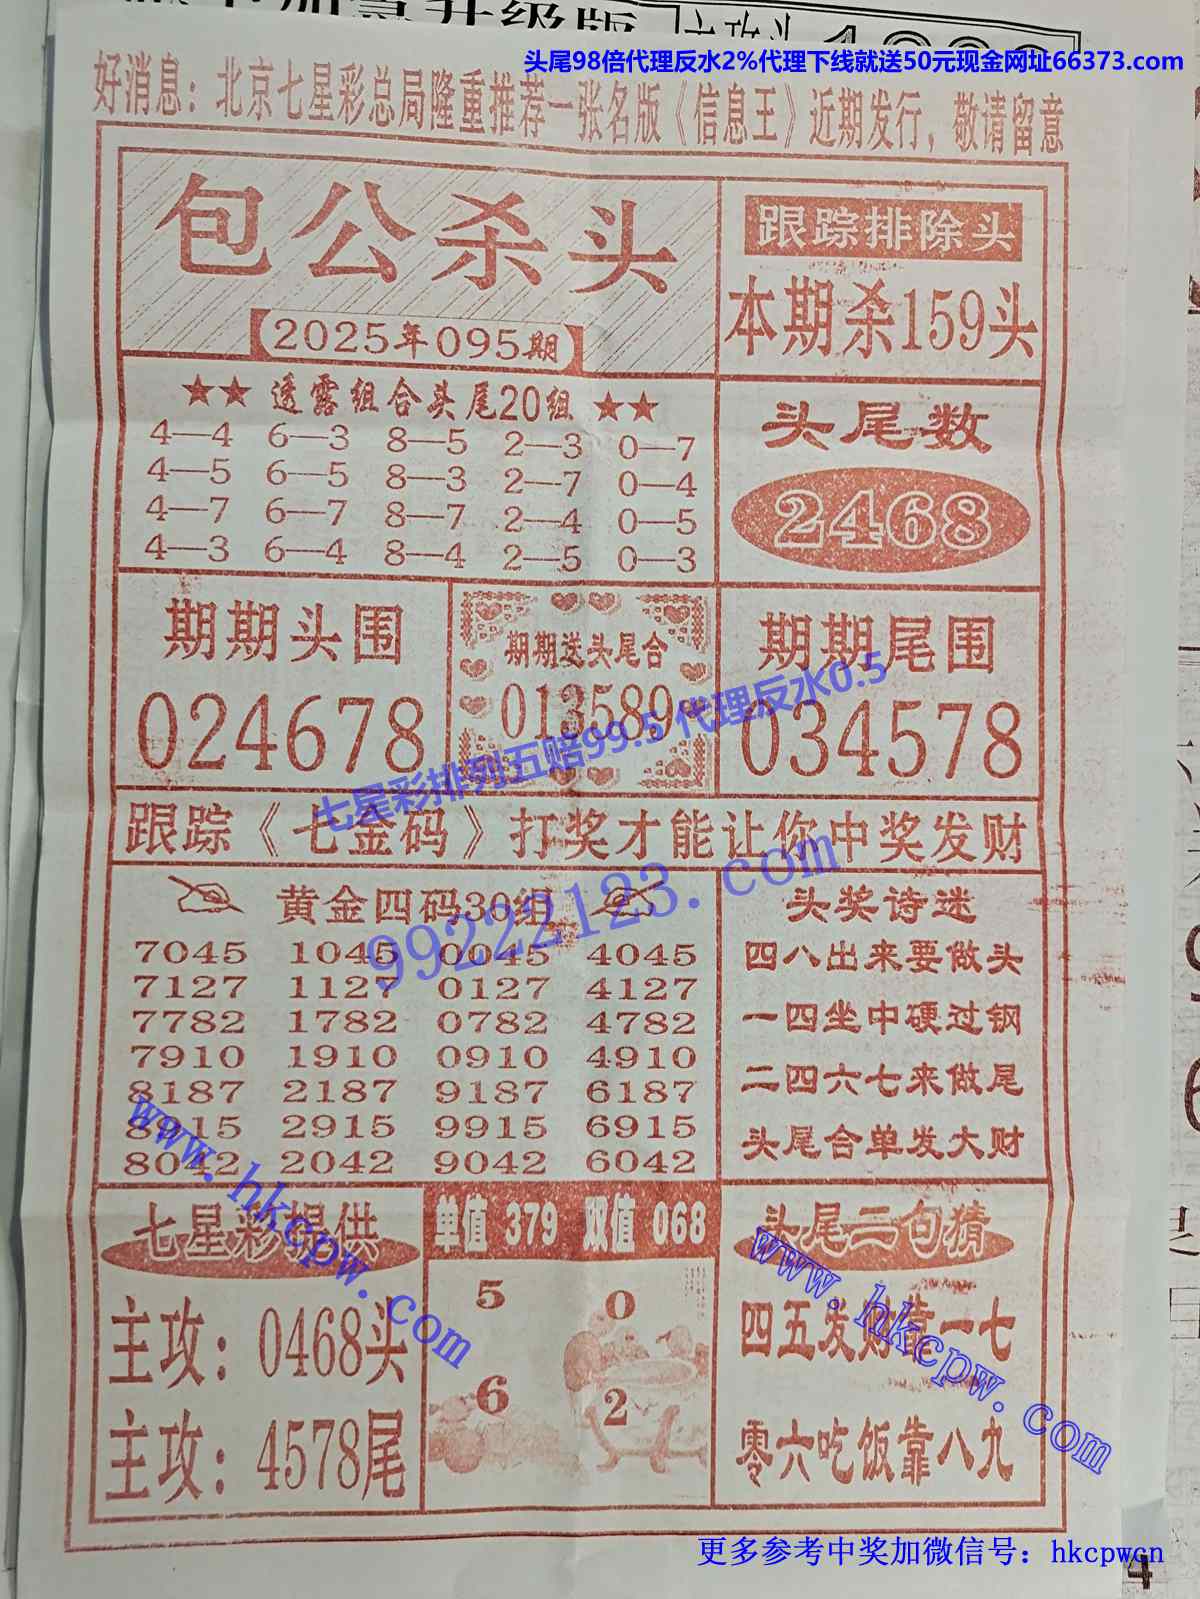 头尾98倍代理反水2%代理下线就送50元现金网址66373.com
好消息：北京七星彩总局隆重推荐一张名版《信息王》近期发行，敬请留意
包公杀头
【2025年095期】
跟踪排除头
本期杀159头
★★ 透露组合头尾20组 ★★
4—4 6—3 8—5 2—3 0—7
4—5 6—5 8—3 2—7 0—4
4—7 6—7 8—7 2—4 0—5
4—3 6—4 8—4 2—5 0—3
头尾数
2468
期期头围
024678
期期送头尾合
013589
期期尾围
034578
七星彩排列五赔99.5 代理反水0.5
跟踪《七金码》打奖才能让你中奖发财
99222123.com
黄金四码30组
7045 1045 0045 4045
7127 1127 0127 4127
7782 1782 0782 4782
7910 1910 0910 4910
8187 2187 9187 6187
8915 2915 9915 6915
8042 2042 9042 6042
头奖诗迷
四八出来要做头
一四坐中硬过钢
二四六七来做尾
头尾合单发大财
www.hkcpw.com
七星彩提供
主攻：0468头
主攻：4578尾
单值 379 双值 068
5 0
6 2
头尾二句猜
四五发财靠一七
零六吃饭靠八九
www.hkcpw.com
更多参考中奖加微信号：hkcpwcn
4